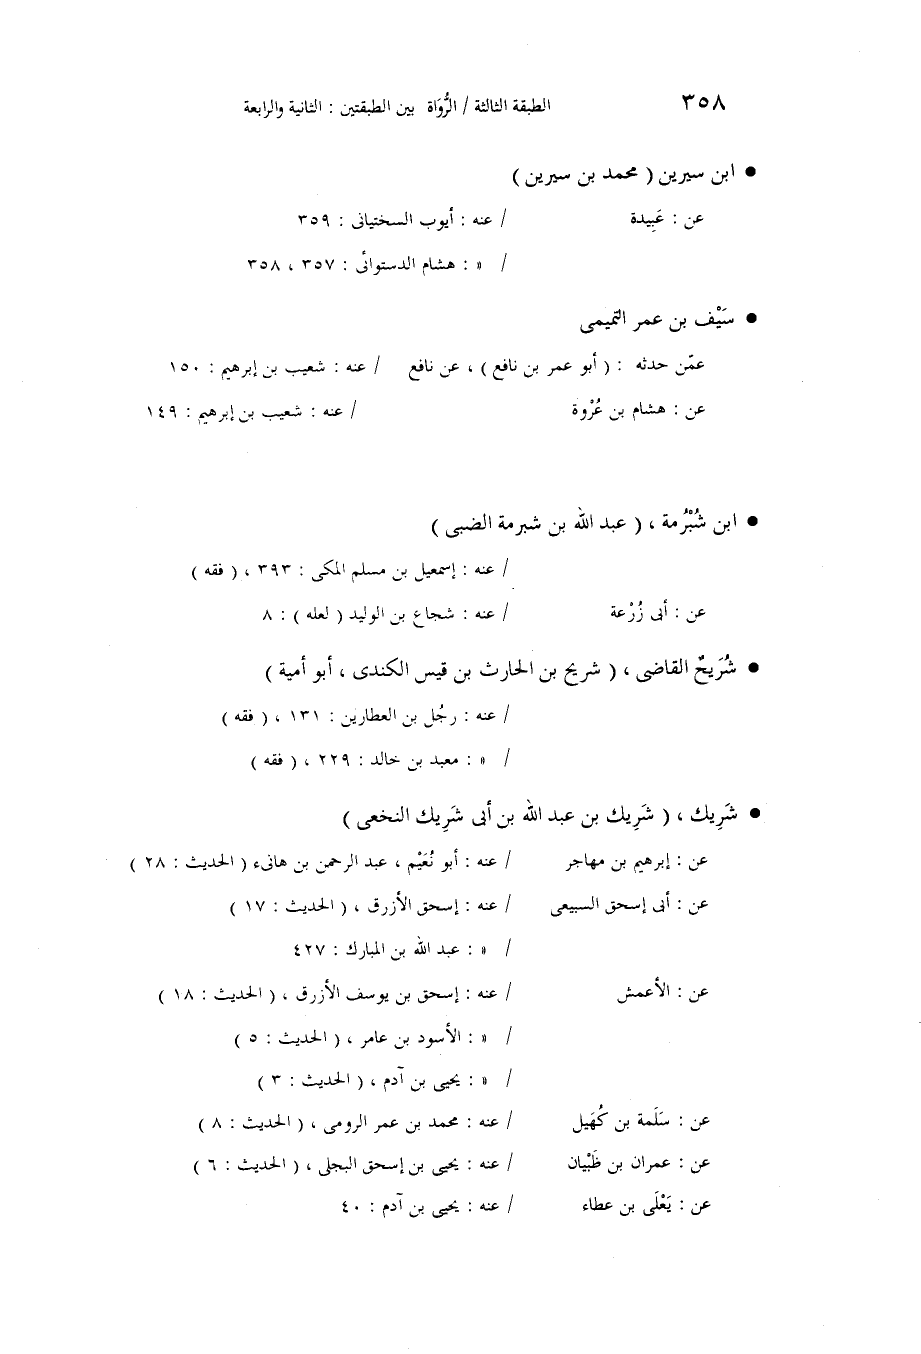 ٣٥٨ الطبقة الثالثة / الرُّوَاة بين الطبقتين : الثانية والرابعة
● ابن سيرين ( محمد بن سيرين )
عن : عَبِيدة / عنه : أيوب السختيانى : ٣٥٩
/ » : هشام الدستوائى : ٣٥٧ ، ٣٥٨
● سَيْف بن عمر التميمى
عمّن حدثه : ( أبو عمر بن نافع ) ، عن نافع / عنه : شعيب بن إبرهيم : ١٥٠
عن : هشام بن عُرْوة / عنه : شعيب بن إبرهيم : ١٤٩
● ابن شُبْرُمة ، ( عبد الله بن شبرمة الضبى )
/ عنه : إسمعيل بن مسلم المكى : ٣٩٣ ، ( فقه )
عن : أبى زُرْعة / عنه : شجاع بن الوليد ( لعله ) : ٨
● شُرَيحٌ القاضى ، ( شريح بن الحارث بن قيس الكندى ، أبو أمية )
/ عنه : رجُل بن العطارين : ١٣١ ، ( فقه )
/ » : معبد بن خالد : ٢٢٩ ، ( فقه )
● شَرِيك ، ( شَرِيك بن عبد الله بن أبى شَرِيك النخعى )
عن : إبرهيم بن مهاجر / عنه : أبو نُعَيْم ، عبد الرحمن بن هانىء ( الحديث : ٢٨ )
عن : أبى إسحق السبيعى / عنه : إسحق الأزرق ، ( الحديث : ١٧ )
/ » : عبد الله بن المبارك : ٤٢٧
عن : الأعمش / عنه : إسحق بن يوسف الأزرق ، ( الحديث : ١٨ )
/ » : الأسود بن عامر ، ( الحديث : ٥ )
/ » : يحيى بن آدم ، ( الحديث : ٣ )
عن : سَلَمة بن كُهَيل / عنه : محمد بن عمر الرومى ، ( الحديث : ٨ )
عن : عمران بن ظَبْيان / عنه : يحيى بن إسحق البجلى ، ( الحديث : ٦ )
عن : يَعْلَى بن عطاء / عنه : يحيى بن آدم : ٤٠